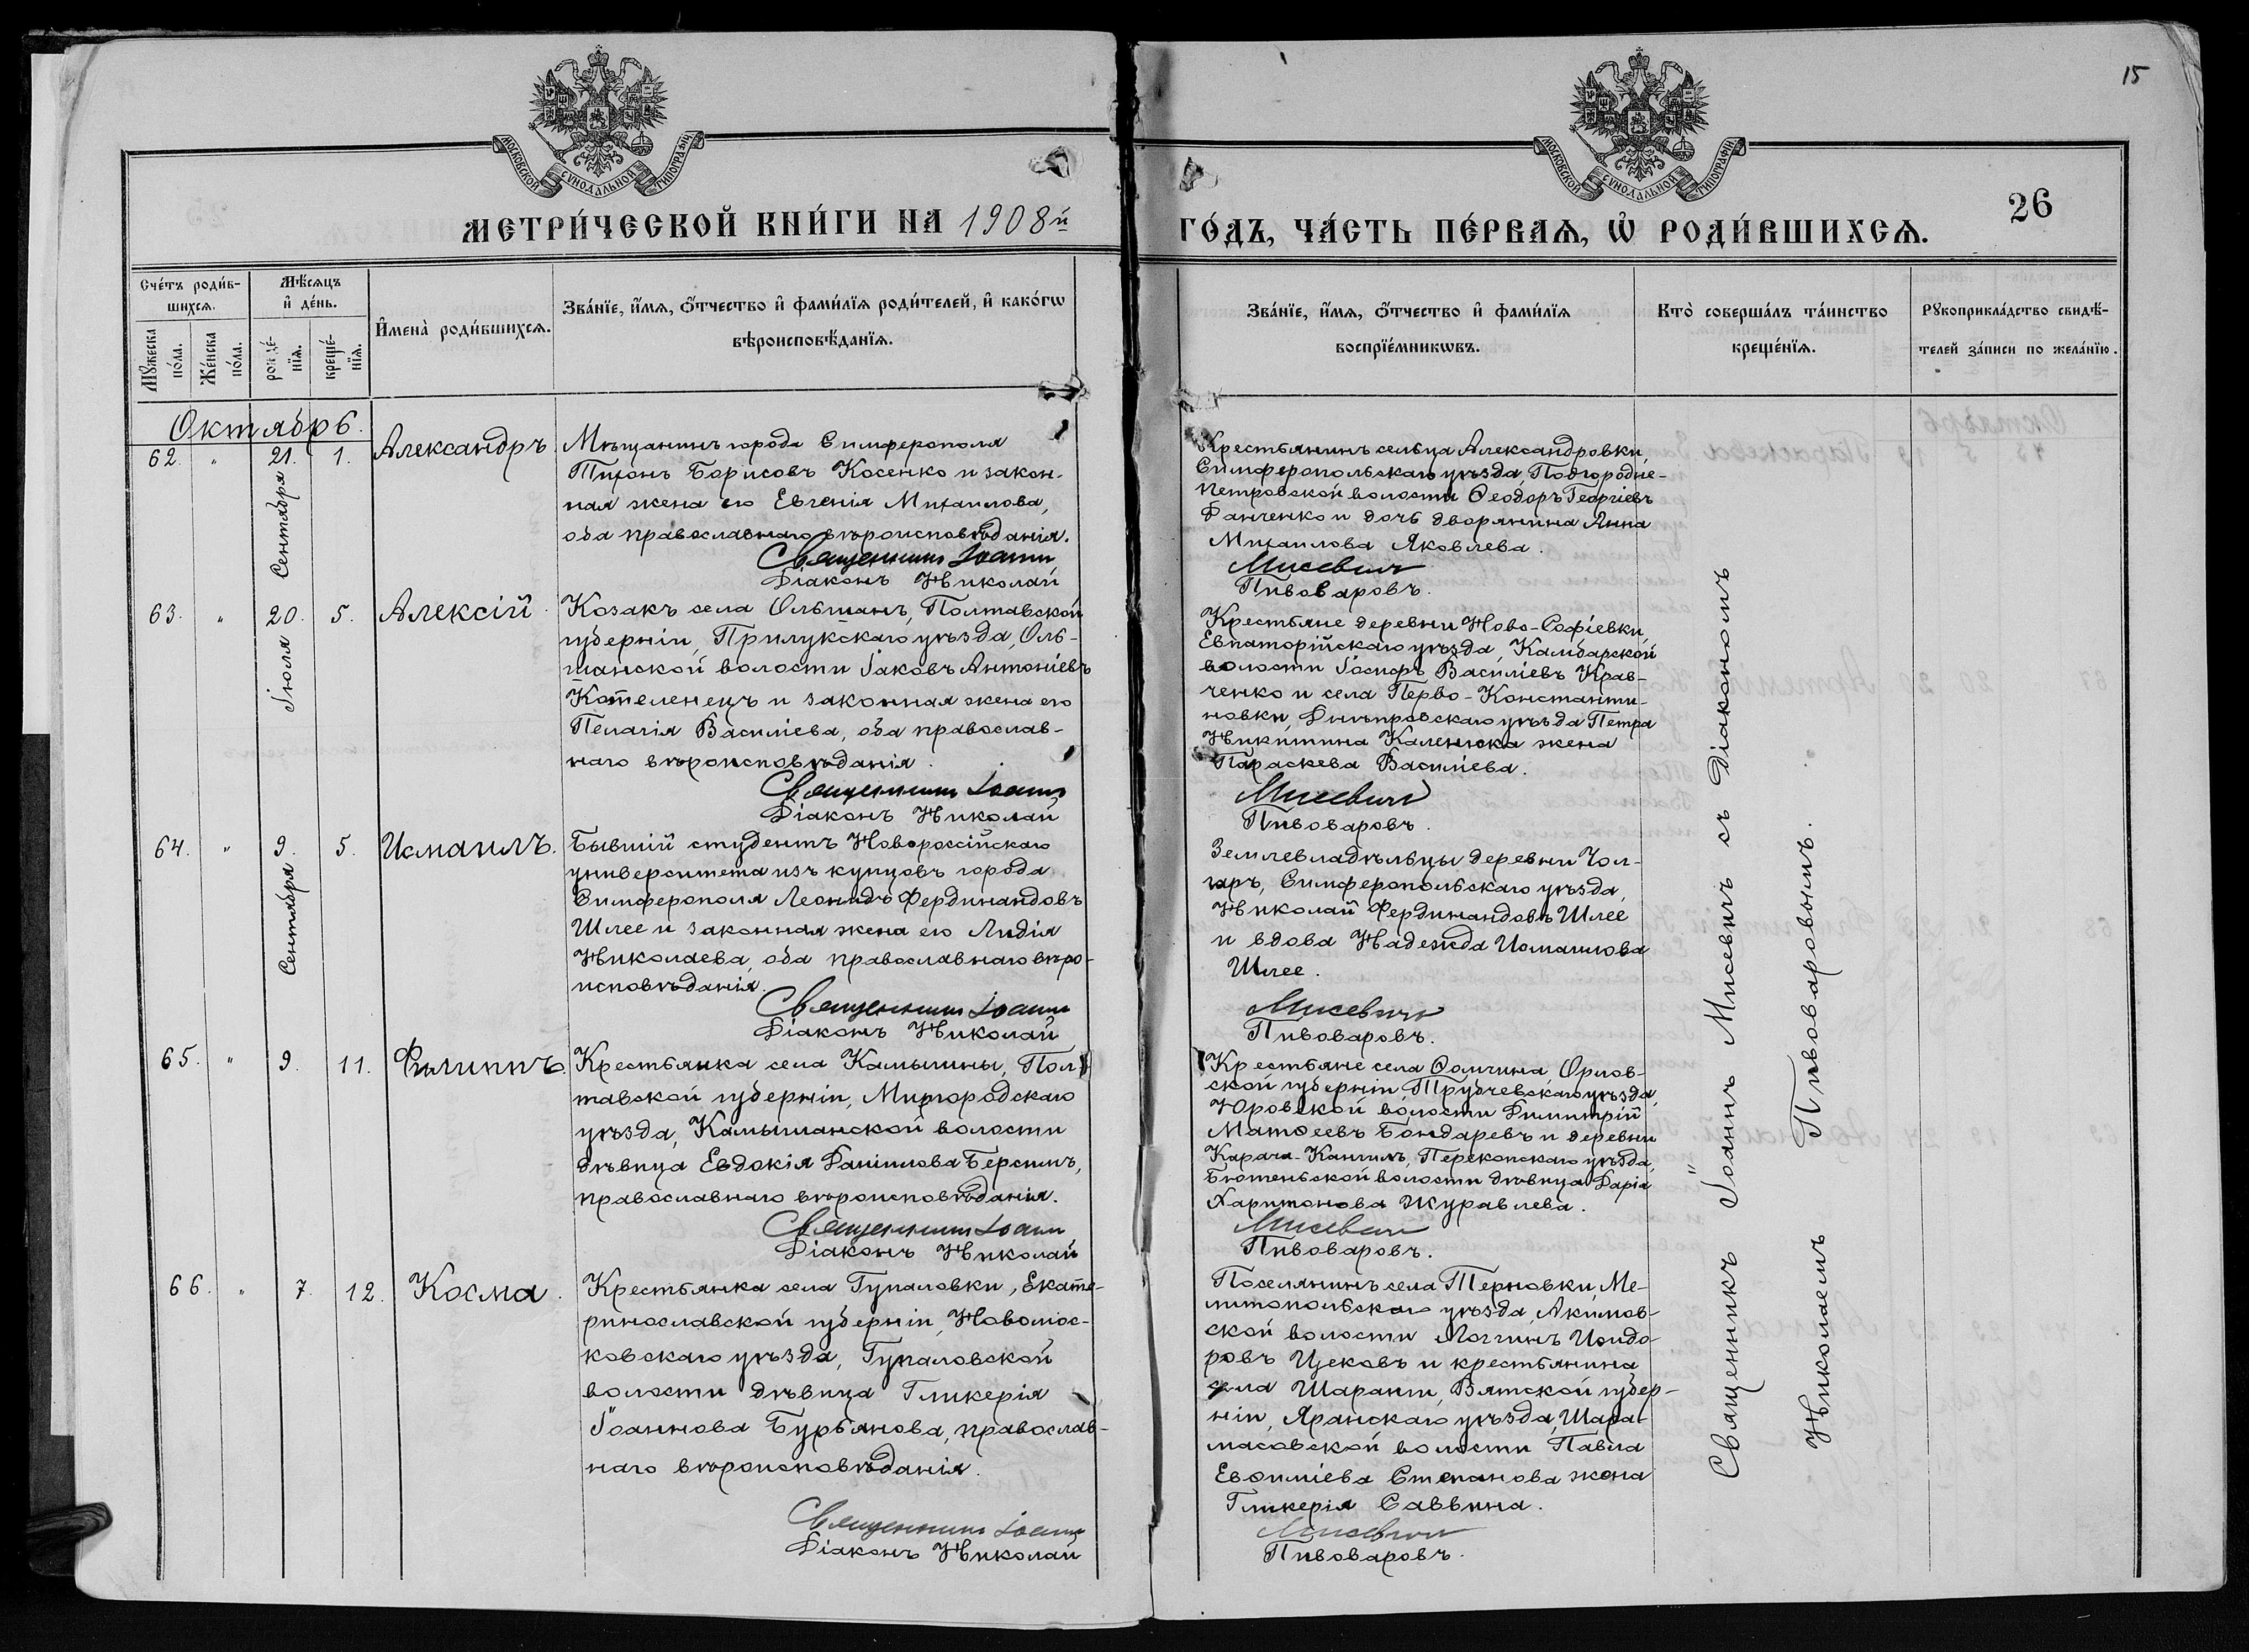 15
МОСКОВСКОЙ СѴНОДАЛЬНОЙ ТИПОГРАФІИ
МОСКОВСКОЙ СѴНОДАЛЬНОЙ ТИПОГРАФІИ
МЕТРИ́ЧЕСКОЙ КНИ́ГИ НА 1908й
ГО́ДЪ, ЧА́СТЬ ПЕ́РВАѦ, Ѡ҆ РОДИ́ВШИХСѦ.
26
Сче́тъ роди́в-
шихсѧ.
Мꙋ́жеска по́ла.
Же́нска по́ла.
Мѣ́сѧцъ
и҆ де́нь.
рожде́-нїѧ.
креще́-нїѧ.
И҆мена̀ роди́вшихсѧ.
Зва́нїе, и҆́мѧ, ѻ҆́тчество и҆ фами́лїѧ роди́телей, и҆ како́гѡ
вѣроисповѣ́данїѧ.
Зва́нїе, и҆́мѧ, ѻ҆́тчество и҆ фами́лїѧ
воспрїе́мникѡвъ.
Кто̀ соверша́лъ та́инство
креще́нїѧ.
Рꙋкоприкла́дство свидѣ́-
телей за́писи по жела́нїю.
Октябрь.
62. " 21. 1. Александръ.
Сентября
Мѣщанинъ города Симферополя
Тихонъ Борисовъ Косенко и закон-
ная жена его Евгенія Михаилова,
оба православнаго вѣроисповѣданія.
Священникъ Іоаннъ
Діаконъ Николай
Крестьянинъ сельца Александровки,
Симферопольскаго уѣзда, Подгородне-
Петровской волости Ѳеодоръ Георгіевъ
Панченко и дочь дворянина Анна
Михаилова Яковлева.
Мисевичъ
Пивоваровъ.
63. " 20. 5. Алексій.
Іюля
Козакъ села Ольшанъ, Полтавской
губерніи, Прилукскаго уѣзда, Оль-
шанской волости Іаковъ Антоніевъ
Котеленецъ и законная жена его
Пелагія Василіева, оба православ-
наго вѣроисповѣданія.
Священникъ Іоаннъ
Діаконъ Николай
Крестьяне деревни Ново-Софіевки,
Евпаторійскаго уѣзда, Камбарской
волости Іосифъ Василіевъ Крав-
ченко и села Перво-Константи-
новки, Днѣпровскаго уѣзда Петра
Никитина Каленюка жена
Параскева Василіева.
Мисевичъ
Пивоваровъ.
64. " 9. 5. Исмаилъ.
Сентября
Бывшій студентъ Новороссійскаго
университета изъ купцовъ города
Симферополя Леонидъ Фердинандовъ
Шлее и законная жена его Лидія
Николаева, оба православнаго вѣро-
исповѣданія.
Священникъ Іоаннъ
Діаконъ Николай
Землевладѣльцы деревни Чон-
гаръ, Симферопольскаго уѣзда,
Николай Фердинандовъ Шлее
и вдова Надежда Исмаилова
Шлее.
Мисевичъ
Пивоваровъ.
65. " 9. 11. Филиппъ.
Крестьянка села Камышны, Пол-
тавской губерніи, Миргородскаго
уѣзда, Камышанской волости
дѣвица Евдокія Даніилова Берсимъ,
православнаго вѣроисповѣданія.
Священникъ Іоаннъ
Діаконъ Николай
Крестьяне села Орлов-
ской губерніи, Трубчевскаго уѣзда,
Юровской волости Димитрій
Матѳеевъ Бондаревъ и деревни
Карача-Кангилъ, Перекопскаго уѣзда,
Бютеньской волости дѣвица Дарія
Харитонова Журавлева.
Мисевичъ
Пивоваровъ.
66. " 7. 12. Косма.
Крестьянка села Гупаловки, Екате-
ринославской губерніи, Новомос-
ковскаго уѣзда, Гупаловской
волости дѣвица Гликерія
Іоаннова Бурьянова, православ-
наго вѣроисповѣданія.
Священникъ Іоаннъ
Діаконъ Николай
Поселянинъ села Терновки, Ме-
литопольскаго уѣзда, Акимов-
ской волости Логгинъ Исидо-
ровъ Цековъ и крестьянина
села Шаранги, Вятской губер-
ніи, Яранскаго уѣзда, Шара-
масовской волости Павла
Евѳиміева Степанова жена
Гликерія Саввина.
Мисевичъ
Пивоваровъ.
Священникъ Іоаннъ Мисевичъ съ Діакономъ
Николаемъ Пивоваровымъ.